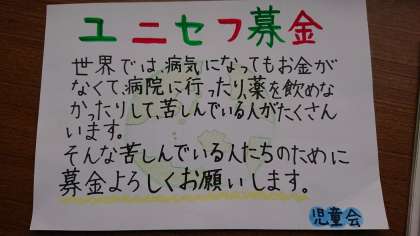 ユニセフ募金
世界では、病気になってもお金が
なくて、病院に行ったり、薬を飲めな
かったりして、苦しんでいる人がたくさん
います。
そんな苦しんでいる人たちのために
募金よろしくお願いします。
児童会